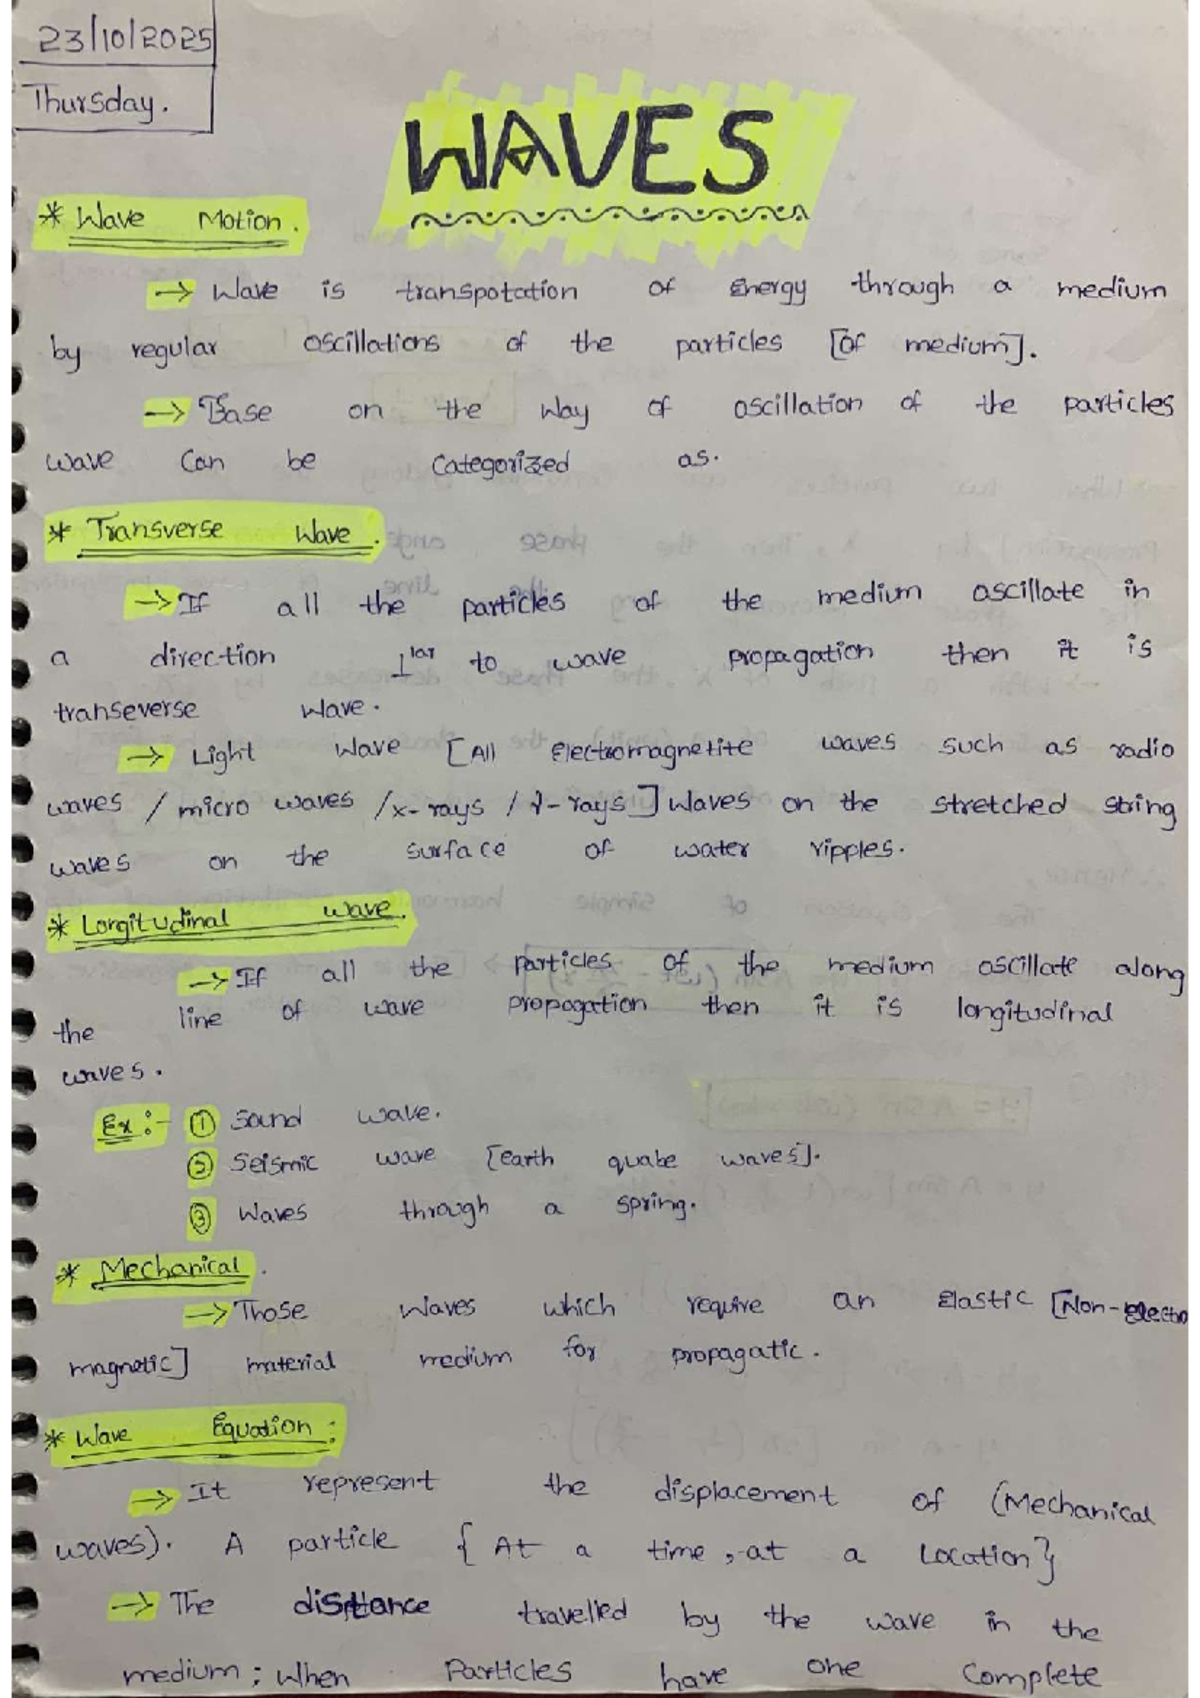 23/10/2025
Thursday.
WAVES
* Wave Motion.
→ Wave is transpotation of Energy through a medium
by regular oscillations of the particles [of medium].
→ Base on the way of oscillation of the particles
wave can be categorized as.
* Transverse Wave.
→ If all the particles of the medium oscillate in
a direction ⊥lar to wave propagation then it is
transeverse wave.
→ Light wave [All Electromagnetite waves such as radio
waves / micro waves / x-rays / γ-rays] waves on the stretched string
waves on the surface of water ripples.
* Longitudinal wave.
→ If all the particles of the medium oscillate along
the line of wave propagation then it is longitudinal
waves.
Ex:- ① Sound wave.
② Seismic wave [earth quake waves].
③ Waves through a spring.
* Mechanical.
→ Those waves which require an Elastic [Non-electro
magnetic] material medium for propagatic.
* Wave Equation:
→ It represent the displacement of (Mechanical
waves). A particle { At a time, at a Location}
→ The distance travelled by the wave in the
medium; When Particles have one complete